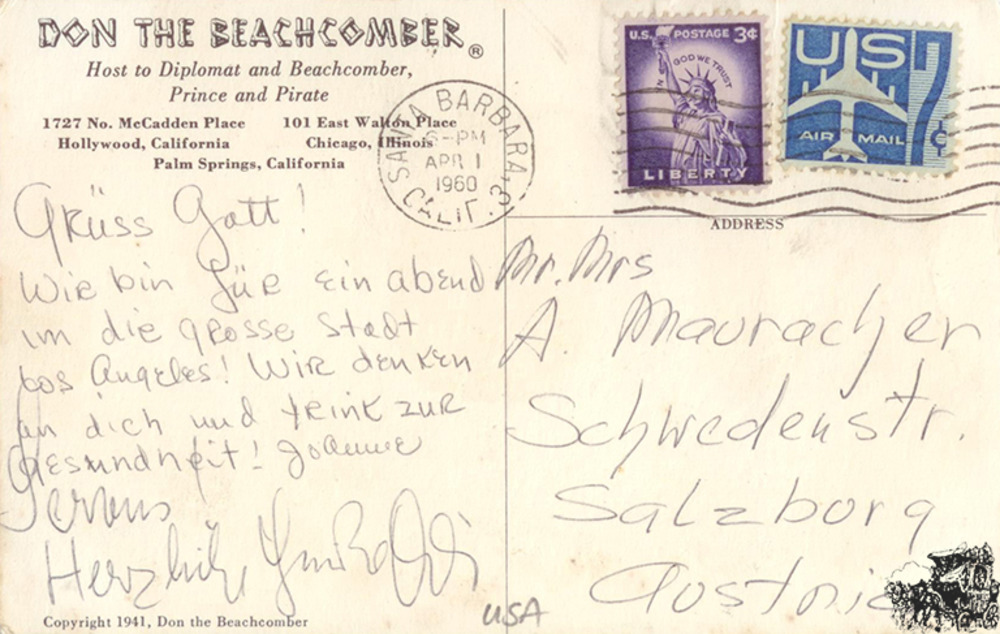 DON THE BEACHCOMBER ®
Host to Diplomat and Beachcomber,
Prince and Pirate
1727 No. McCadden Place 101 East Walton Place
Hollywood, California Chicago, Illinois
Palm Springs, California
SANTA BARBARA, CALIF. 3
6-PM
APR 1
1960
U.S. POSTAGE 3¢
IN GOD WE TRUST
LIBERTY
US 7¢
AIR MAIL
ADDRESS
Grüss Gott!
Wir bin für ein abend
im die grosse Stadt
Los Angeles! Wir denken
an dich und trink zur
Gesundheit! Joanne
Servus
Herzlich
Mr. Mrs
A. Mauracher
Schwedenstr.
Salzburg
Austria
USA
Copyright 1941, Don the Beachcomber